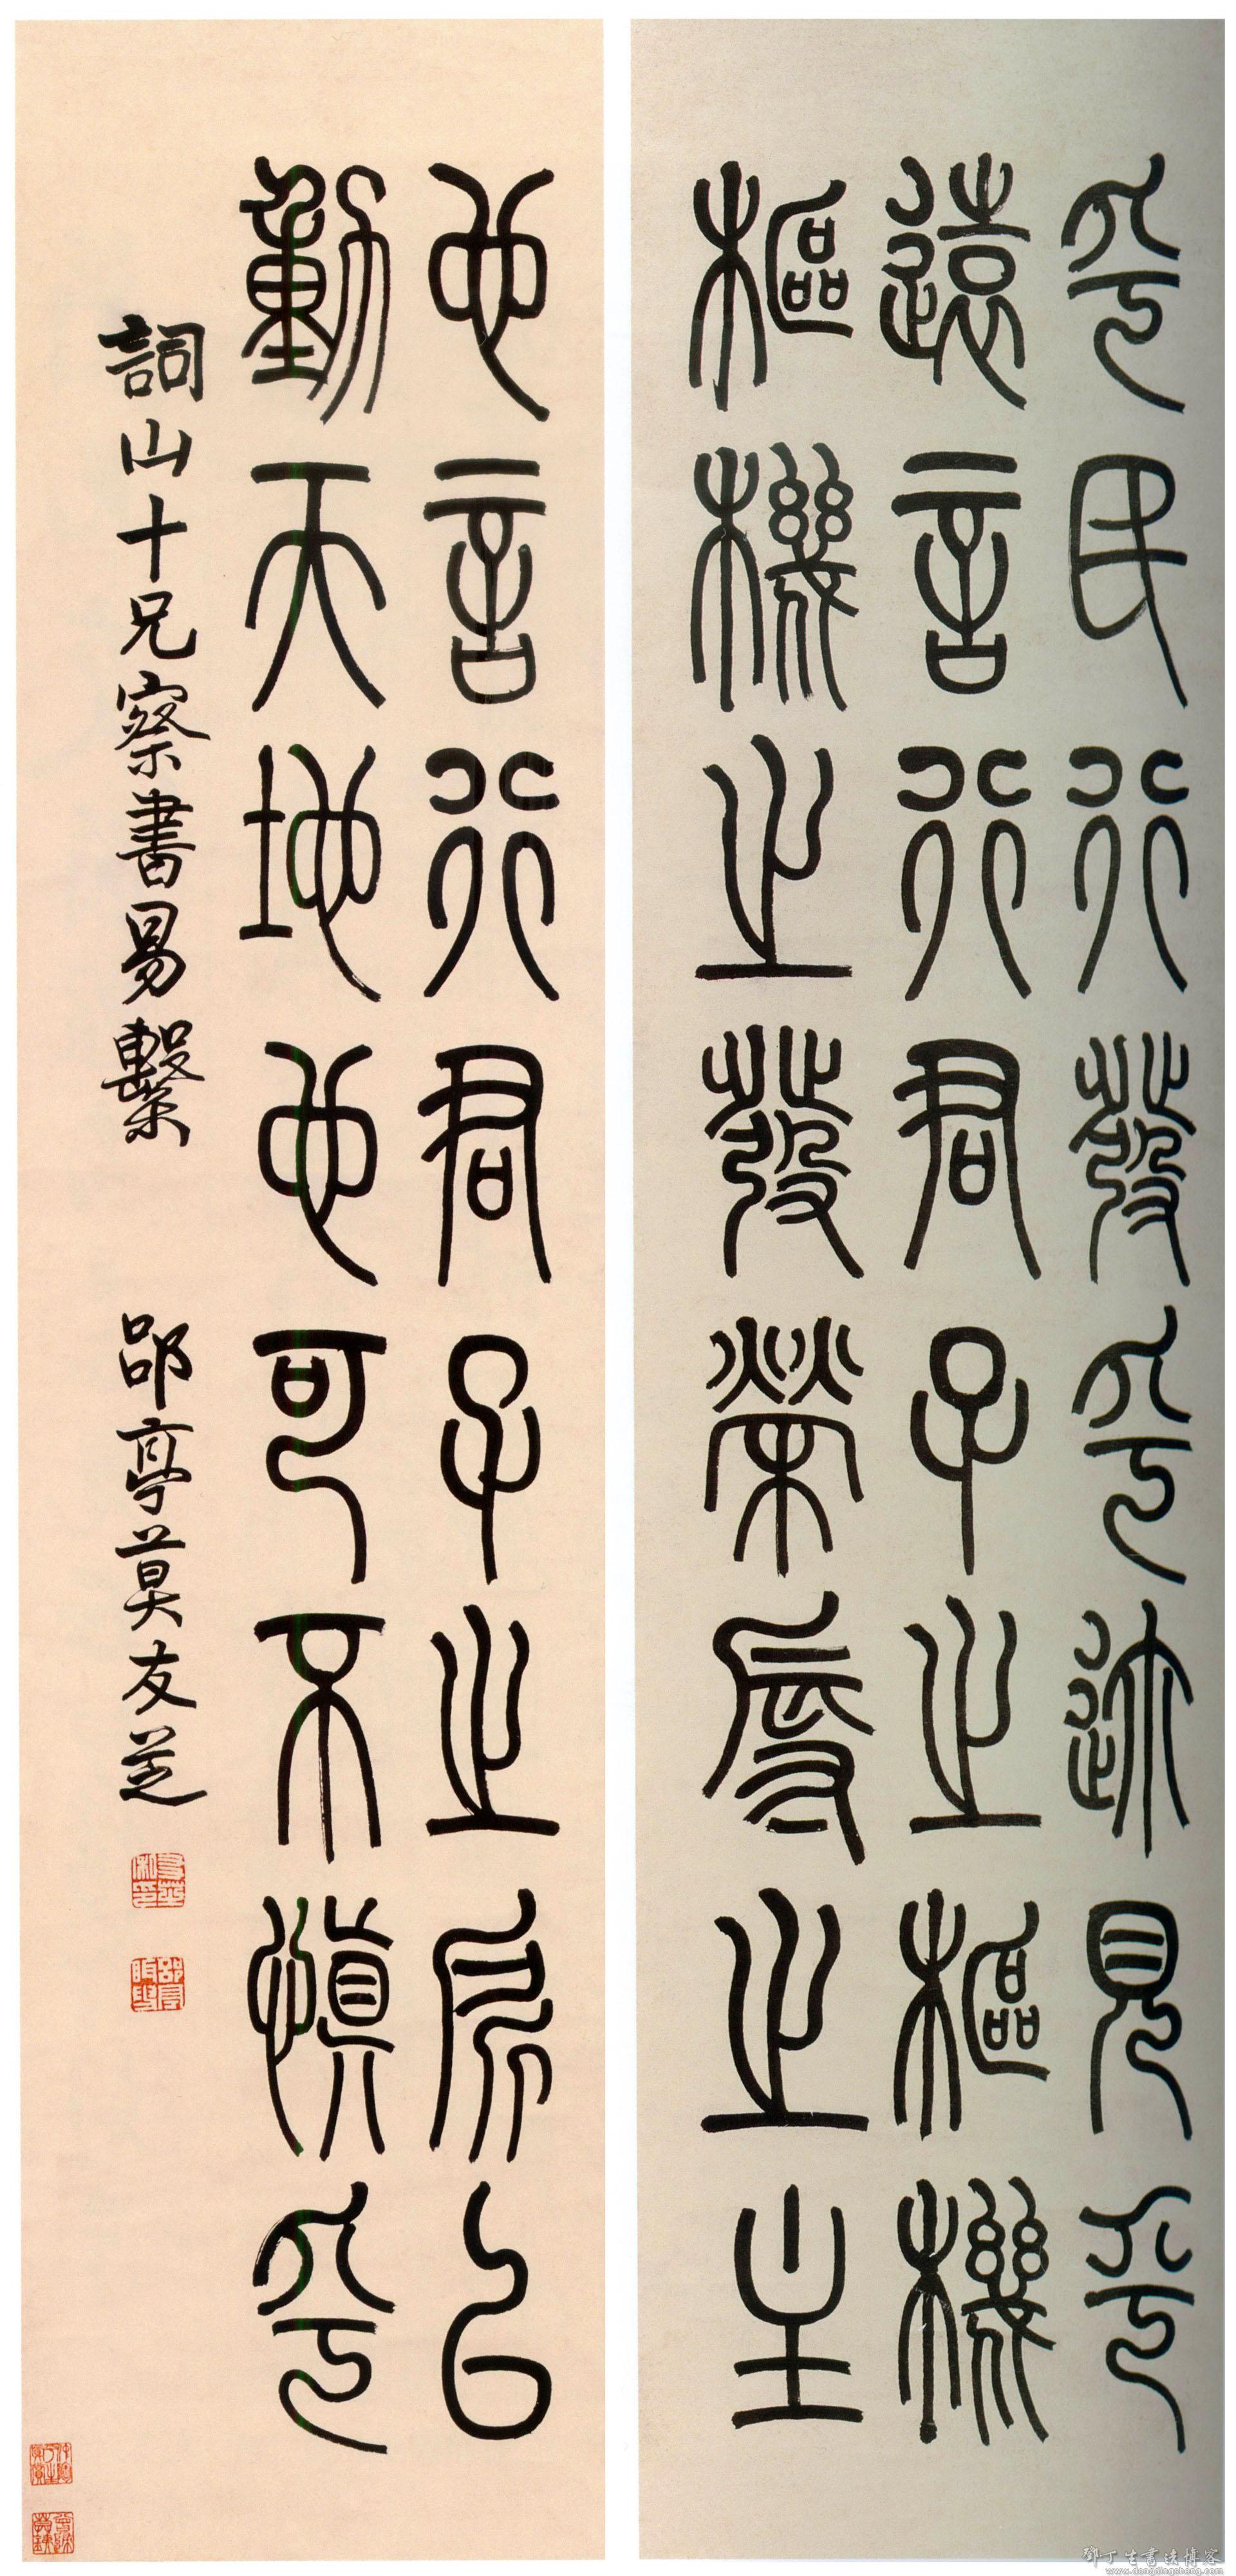 乎民行發乎迩見乎
遠言行君子之樞機
樞機之發榮辱之主
也言行君子之所㠯
動天地也可不慎乎
詞山十兄察書易繫
郘亭莫友芝
鄧丁生書法博客
www.dongdingsheng.com